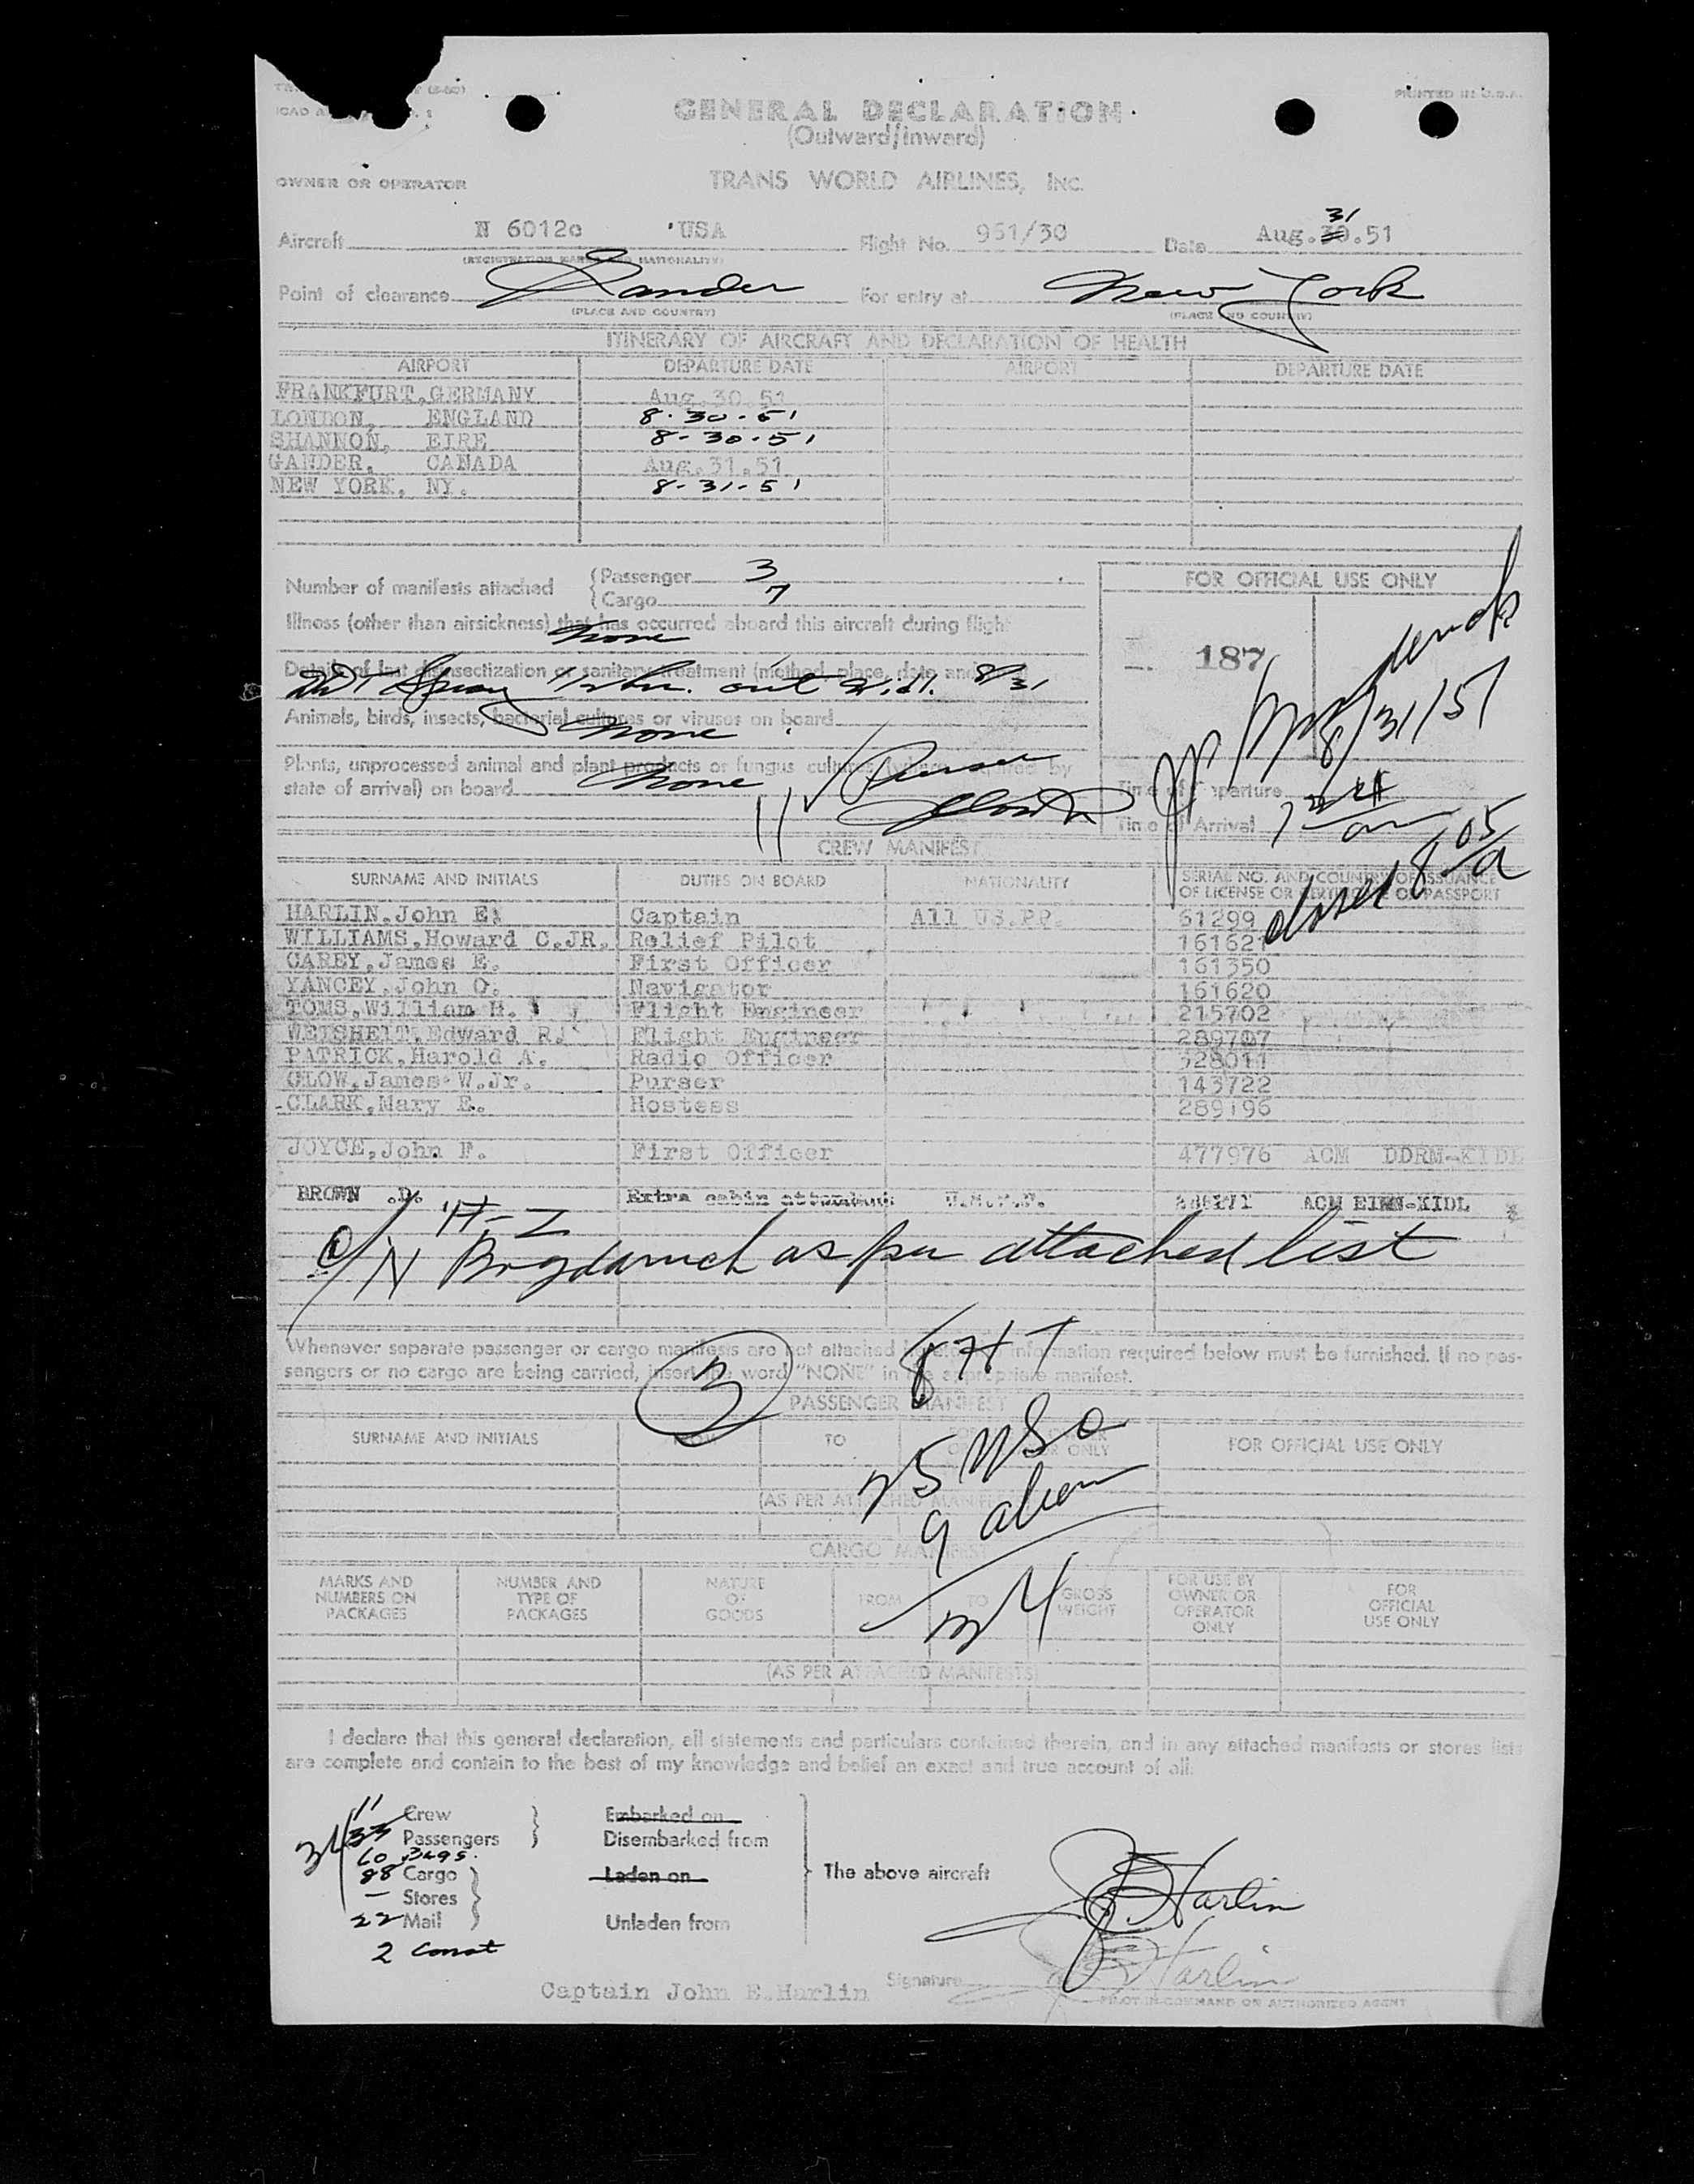 (5-50)
PRINTED IN U.S.A.
ICAO
GENERAL DECLARATION
(Outward/inward)
OWNER OR OPERATOR TRANS WORLD AIRLINES, INC.
Aircraft N 6012c USA Flight No. 951/30 Date Aug. 30.51
31
(REGISTRATION MARKS AND NATIONALITY)
Point of clearance Gander For entry at New York
(PLACE AND COUNTRY) (PLACE AND COUNTRY)
ITINERARY OF AIRCRAFT AND DECLARATION OF HEALTH
AIRPORT DEPARTURE DATE AIRPORT DEPARTURE DATE
FRANKFURT, GERMANY Aug.30.51
LONDON, ENGLAND 8-30-51
SHANNON, EIRE 8-30-51
GANDER, CANADA Aug.31.51
NEW YORK, NY. 8-31-51
Number of manifests attached Passenger 3
Cargo 7
FOR OFFICIAL USE ONLY
Illness (other than airsickness) that has occurred aboard this aircraft during flight
None
187
Details of last disinsectization or sanitary treatment (method, place, date and
Spray out 8/31
8/31/51
Animals, birds, insects, bacterial cultures or viruses on board
None
Plants, unprocessed animal and plant products or fungus cultures (where required by
state of arrival) on board None
11 Purser
Time of Departure
Time of Arrival
closed 8 05/a
CREW MANIFEST
SURNAME AND INITIALS DUTIES ON BOARD NATIONALITY SERIAL NO. AND COUNTRY OF ISSUANCE
OF LICENSE OR CERTIFICATE OR PASSPORT
HARLIN, John E. Captain All US.PP. 61299
WILLIAMS, Howard C.JR. Relief Pilot 161621
CAREY, James E. First Officer 161350
YANCEY, John O. Navigator 161620
TOMS, William H. Flight Engineer 215702
WEISHEIT, Edward R. Flight Engineer 289707
PATRICK, Harold A. Radio Officer 328011
GLOW, James W.Jr. Purser 143722
CLARK, Mary E. Hostess 289196
JOYCE, John F. First Officer 477976 ACM DDRM-KIDL
BROWN .D. Extra cabin attendant ACM EINN-KIDL
as per attached list
Whenever separate passenger or cargo manifests are not attached information required below must be furnished. If no pas-
sengers or no cargo are being carried, insert the word "NONE" in the appropriate manifest.
3
PASSENGER MANIFEST
SURNAME AND INITIALS FROM TO FOR OFFICIAL USE ONLY
25 USC
9 alien
34
(AS PER ATTACHED MANIFESTS)
CARGO MANIFEST
MARKS AND NUMBERS ON PACKAGES
NUMBER AND TYPE OF PACKAGES
NATURE OF GOODS
FROM
TO
GROSS WEIGHT
FOR USE BY OWNER OR OPERATOR ONLY
FOR OFFICIAL USE ONLY
(AS PER ATTACHED MANIFESTS)
I declare that this general declaration, all statements and particulars contained therein, and in any attached manifests or stores lists
are complete and contain to the best of my knowledge and belief an exact and true account of all:
11 Crew Embarked on
34 33 Passengers Disembarked from
60 Bags.
88 Cargo Laden on The above aircraft
- Stores
22 Mail Unladen from
2
Harlin
Captain John E. Harlin Signature Harlin
PILOT IN COMMAND OR AUTHORIZED AGENT